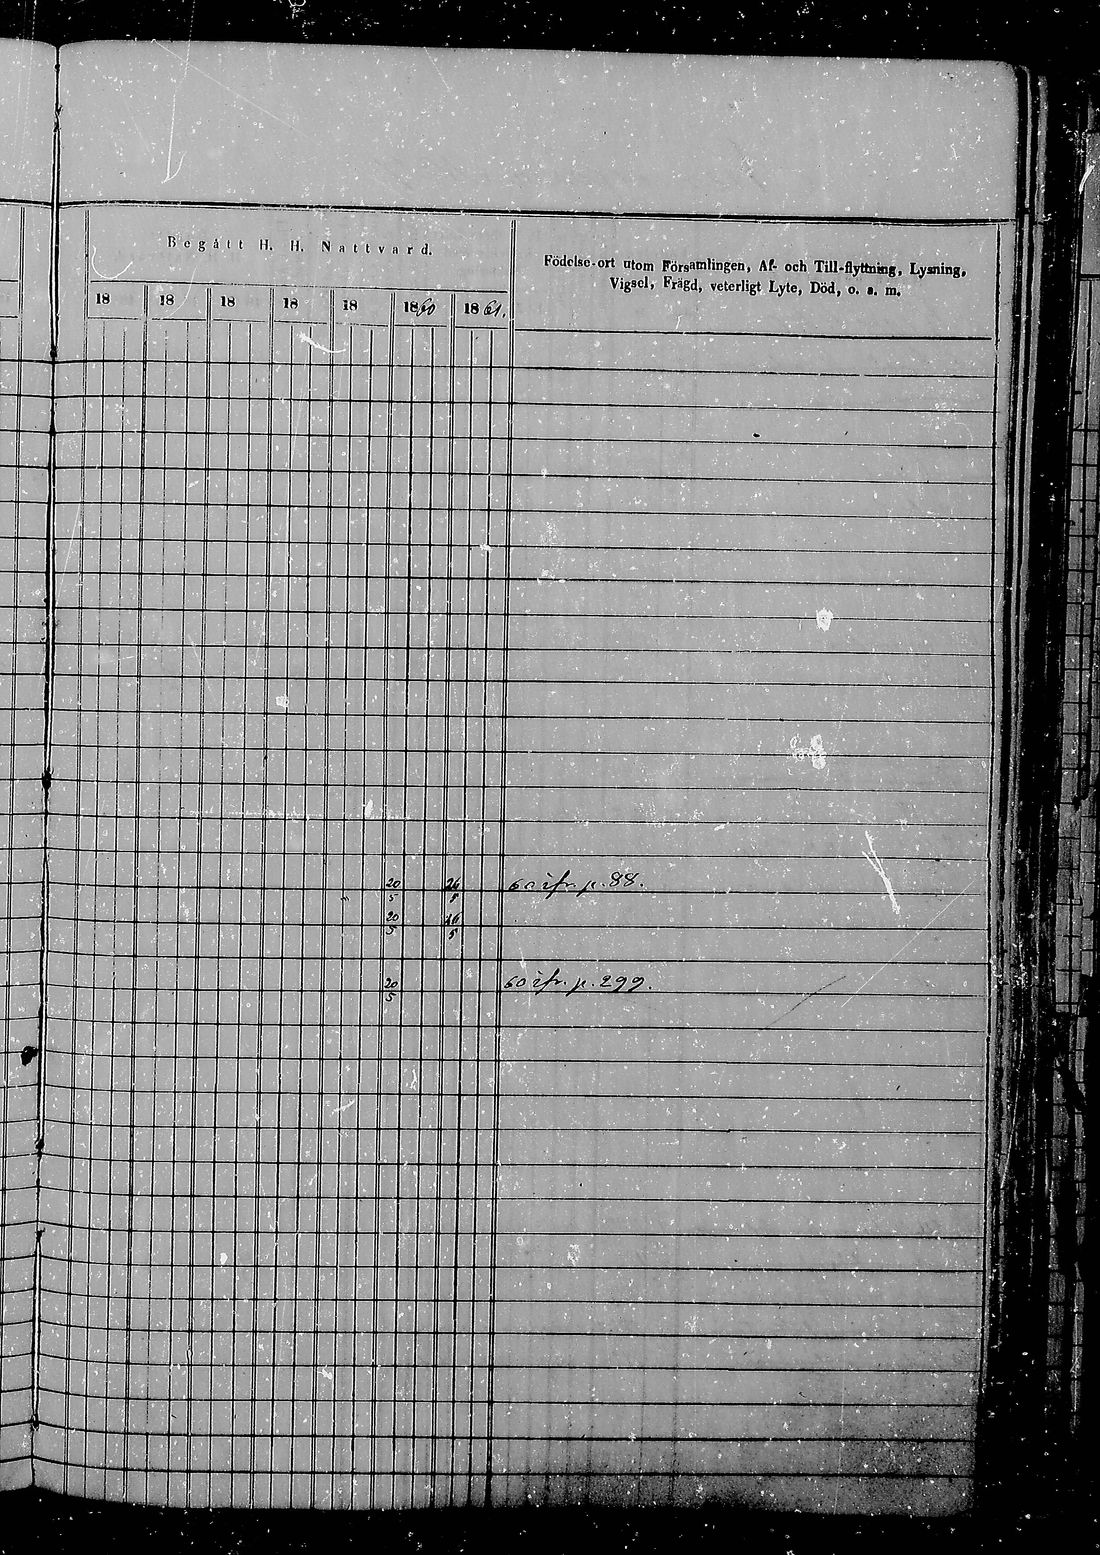 Begått H. H. Nattvard.
Födelse-ort utom Församlingen, Af- och Till-flyttning, Lysning,
Vigsel, Frägd, veterligt Lyte, Död, o. s. m.
18 18 18 18 18 1860 1861.
20 26 60 ifr. p. 88.
5
20 26
5 5
20 60 ifr. p. 299.
5